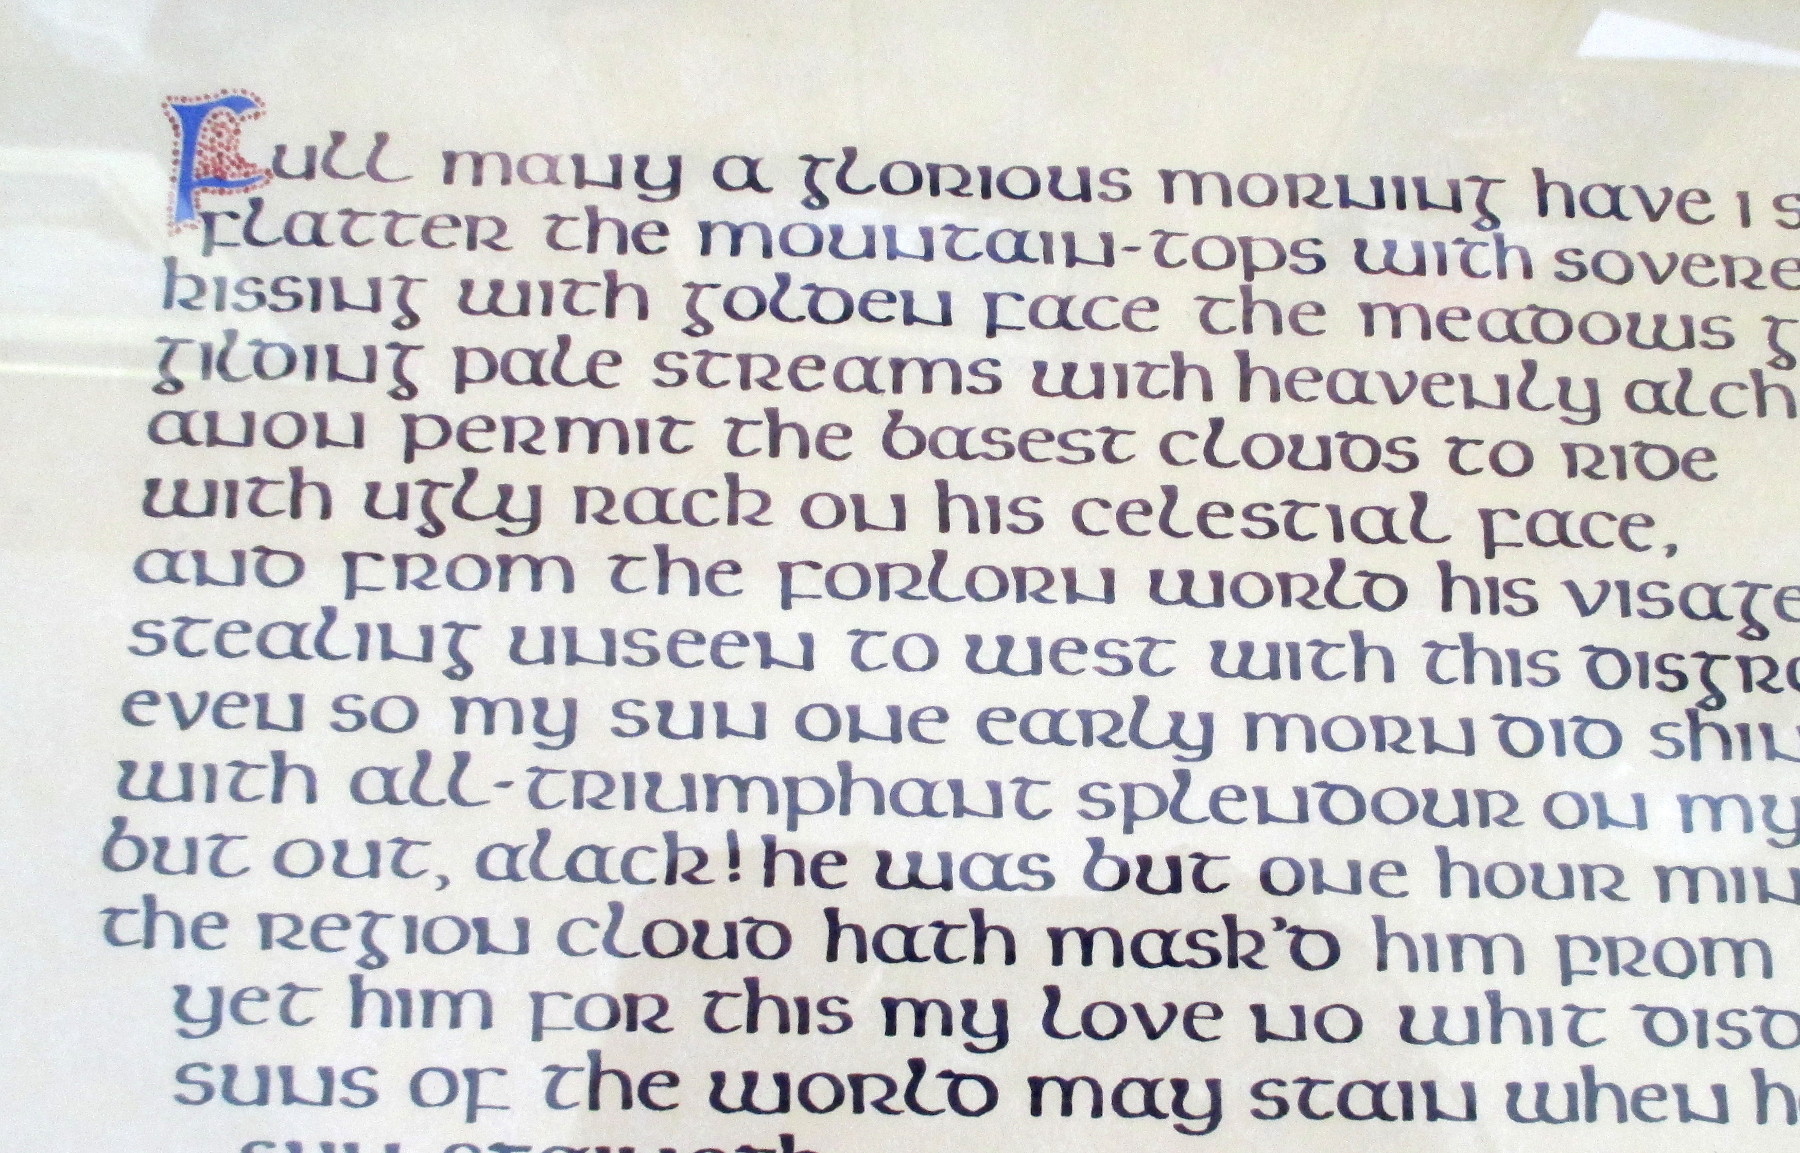 Full many a glorious morning have I s
flatter the mountain-tops with sovere
kissing with golden face the meadows g
gilding pale streams with heavenly alch
anon permit the basest clouds to ride
with ugly rack on his celestial face,
and from the forlorn world his visage
stealing unseen to west with this disgra
even so my sun one early morn did shin
with all-triumphant splendour on my
but out, alack! he was but one hour min
the region cloud hath mask'd him from
yet him for this my love no whit disd
suns of the world may stain when h
sun staineth